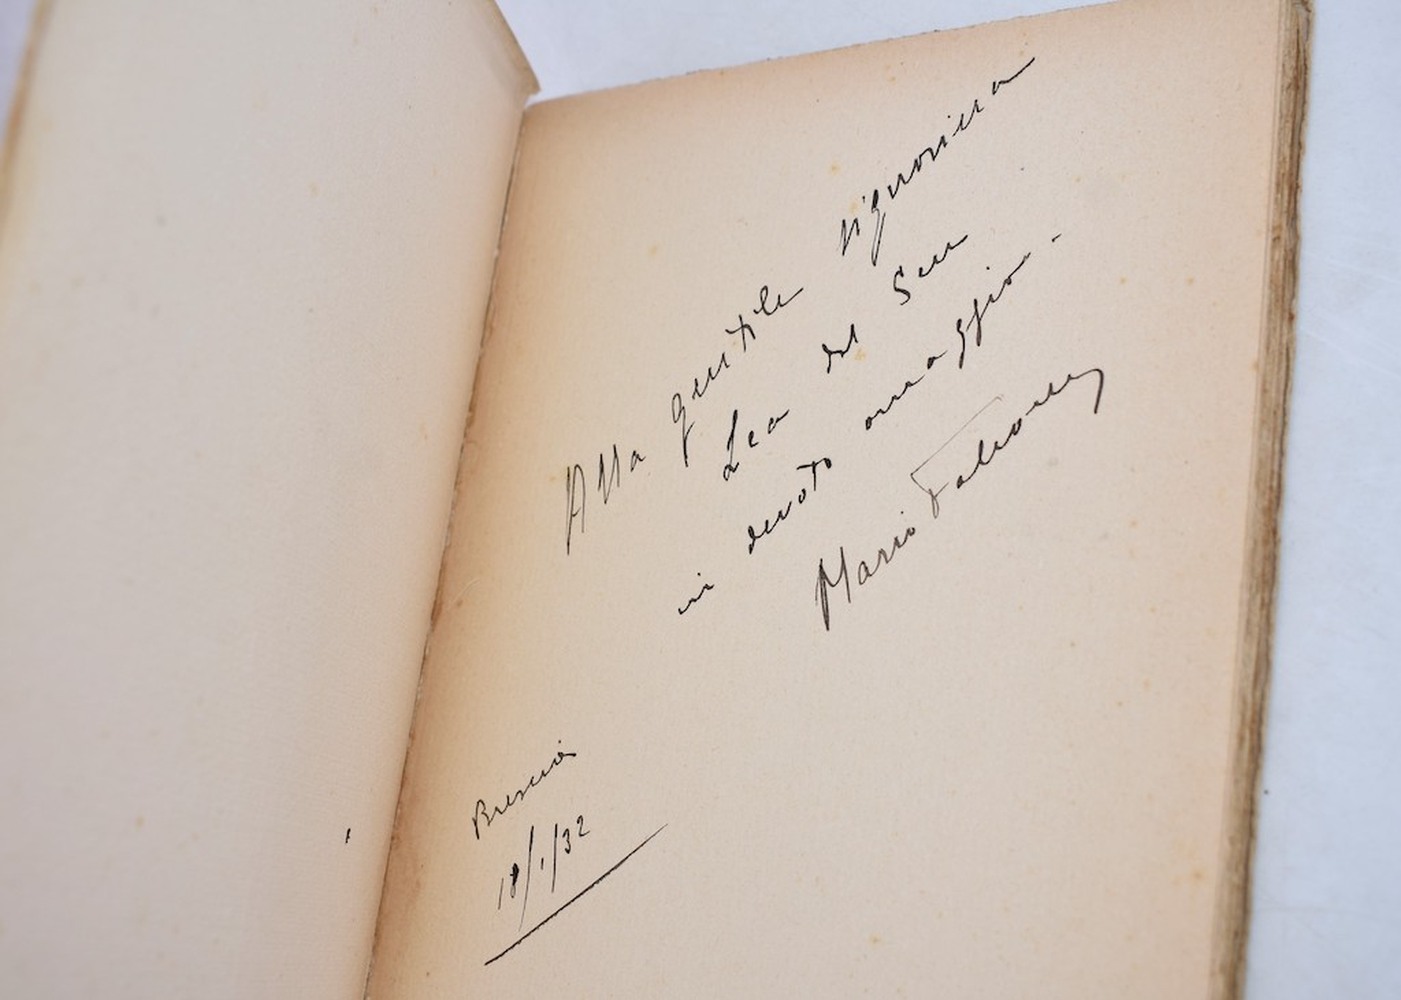 Alla gentile signorina
Lea del Seu
in devoto omaggio -
Mario
Brescia
18/1/32